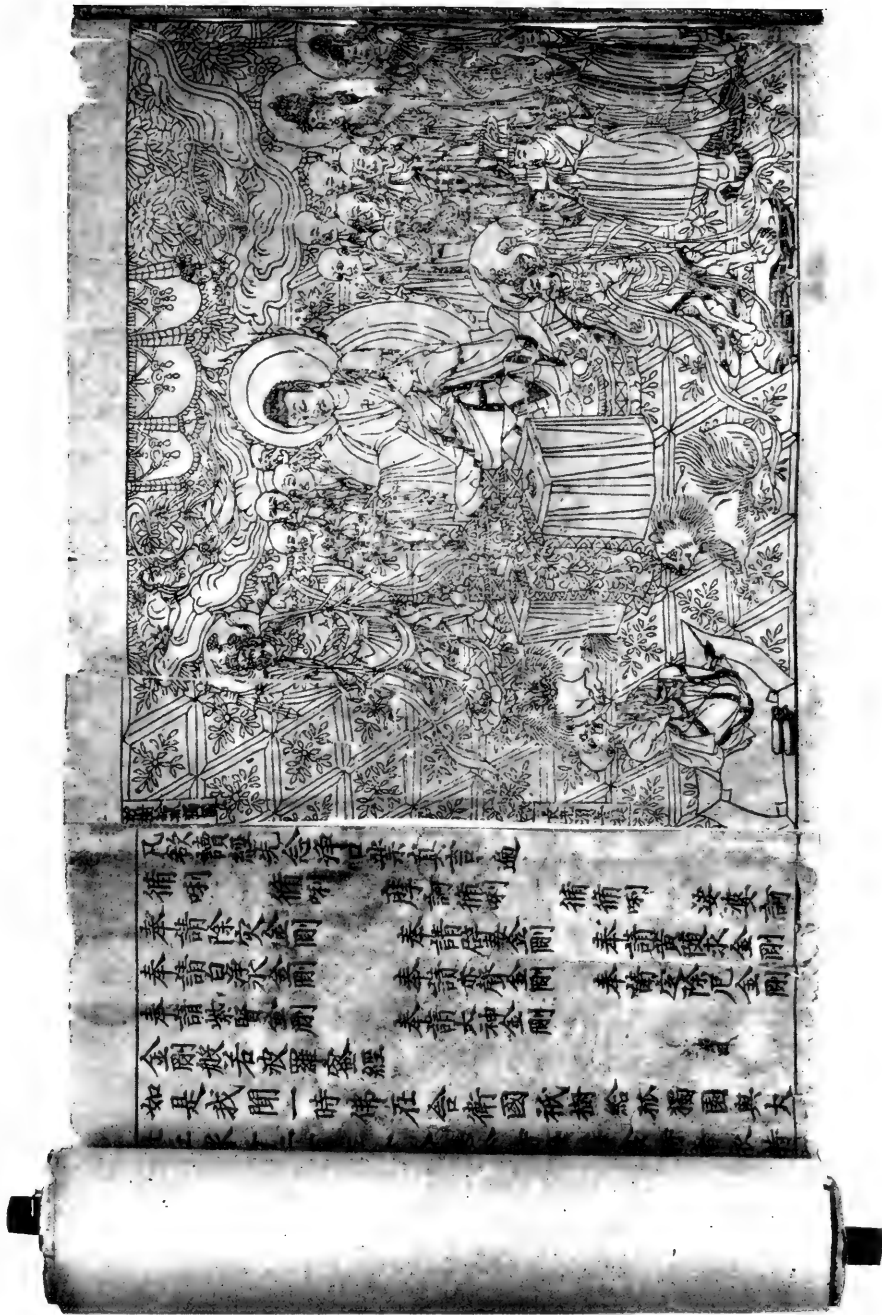 祇樹給孤獨園
長老須菩提
凡欲讀經先念淨口業真言一遍
脩唎 脩唎 摩訶脩唎 脩脩唎 娑婆訶
奉請除灾金剛 奉請辟毒金剛 奉請黃隨求金剛
奉請白淨水金剛 奉請赤聲金剛 奉請定除厄金剛
奉請紫賢金剛 奉請大神金剛
金剛般若波羅蜜經
如是我聞一時佛在舍衛國祇樹給孤獨園與大